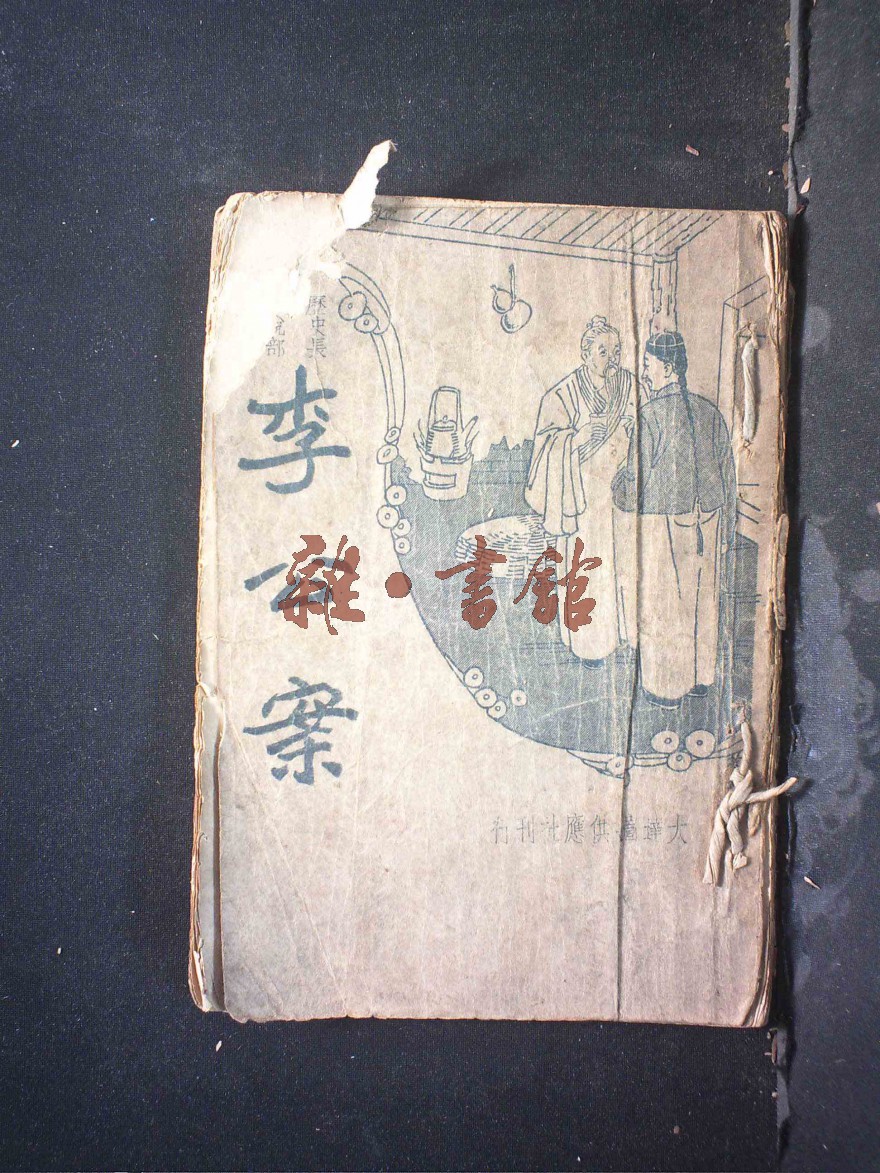 歷史長
說部
李公案
大達圖書供應社刊行
雜·書館